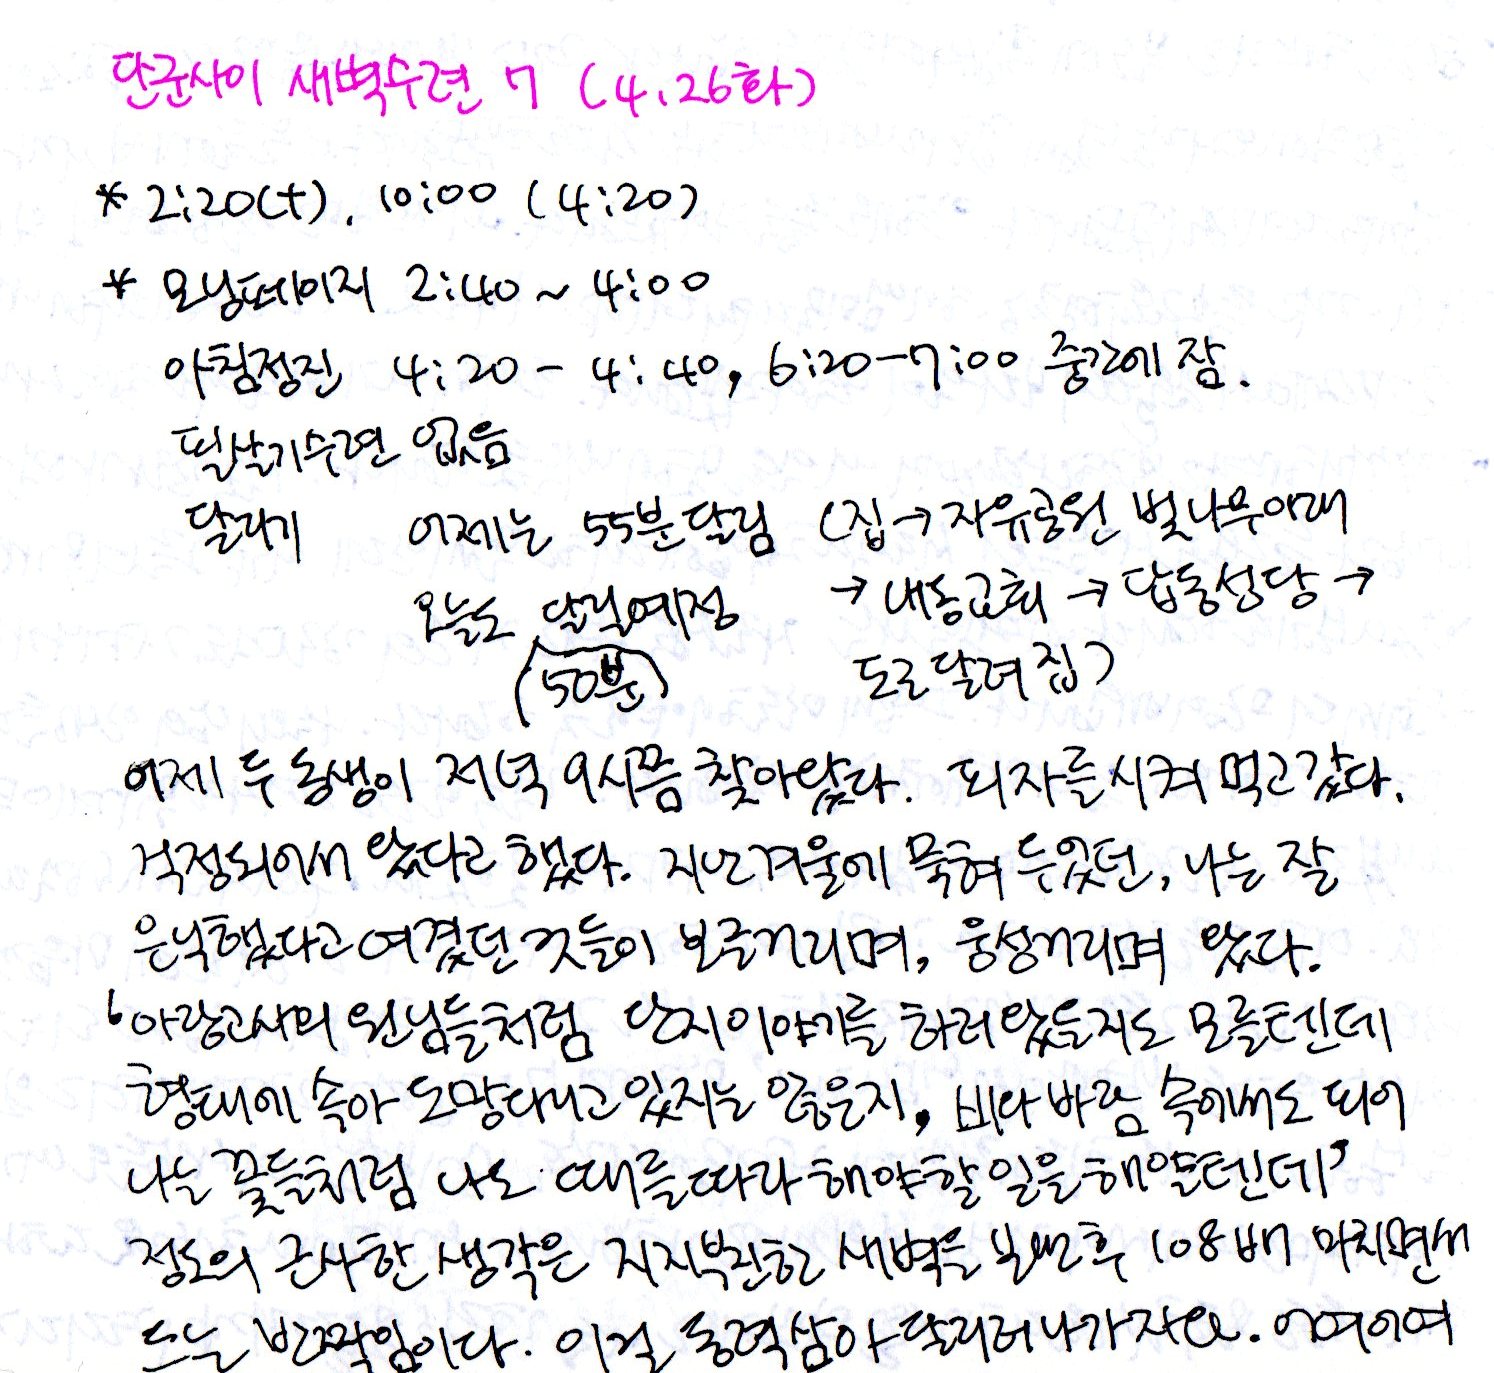 단군사이 새벽수련 7 (4.26화)
* 2:20(+), 10:00 (4:20)
* 모닝페이지 2:40 ~ 4:00
아침정진 4:20 - 4:40, 6:20-7:00 중간에 잠.
필살기수련 없음
달리기 어제는 55분달림 (집→자유공원 벚나무아래
오늘도 달릴예정 →내동교회 → 답동성당 →
(50분) 도로달려 집)
어제 두 동생이 저녁 9시쯤 찾아왔다. 피자를 시켜 먹고 갔다.
걱정되어서 왔다고 했다. 지난겨울에 묵혀 두었던, 나는 잘
은닉했다고 여겼던 것들이 보글거리며, 웅성거리며 왔다.
'아랑고사의 원님들처럼 단지 이야기를 하러 왔을지도 모를텐데
형태에 속아 도망다니고 있지는 않은지, 비와 바람 속에서도 피어
나는 꽃들처럼 나도 때를 따라 해야할 일을 해얄텐데'
정도의 근사한 생각은 지지부진한 새벽을 보낸 후 108배 마치면서
드는 반짝임이다. 이걸 동력삼아 달리러나가자요. 어여어여